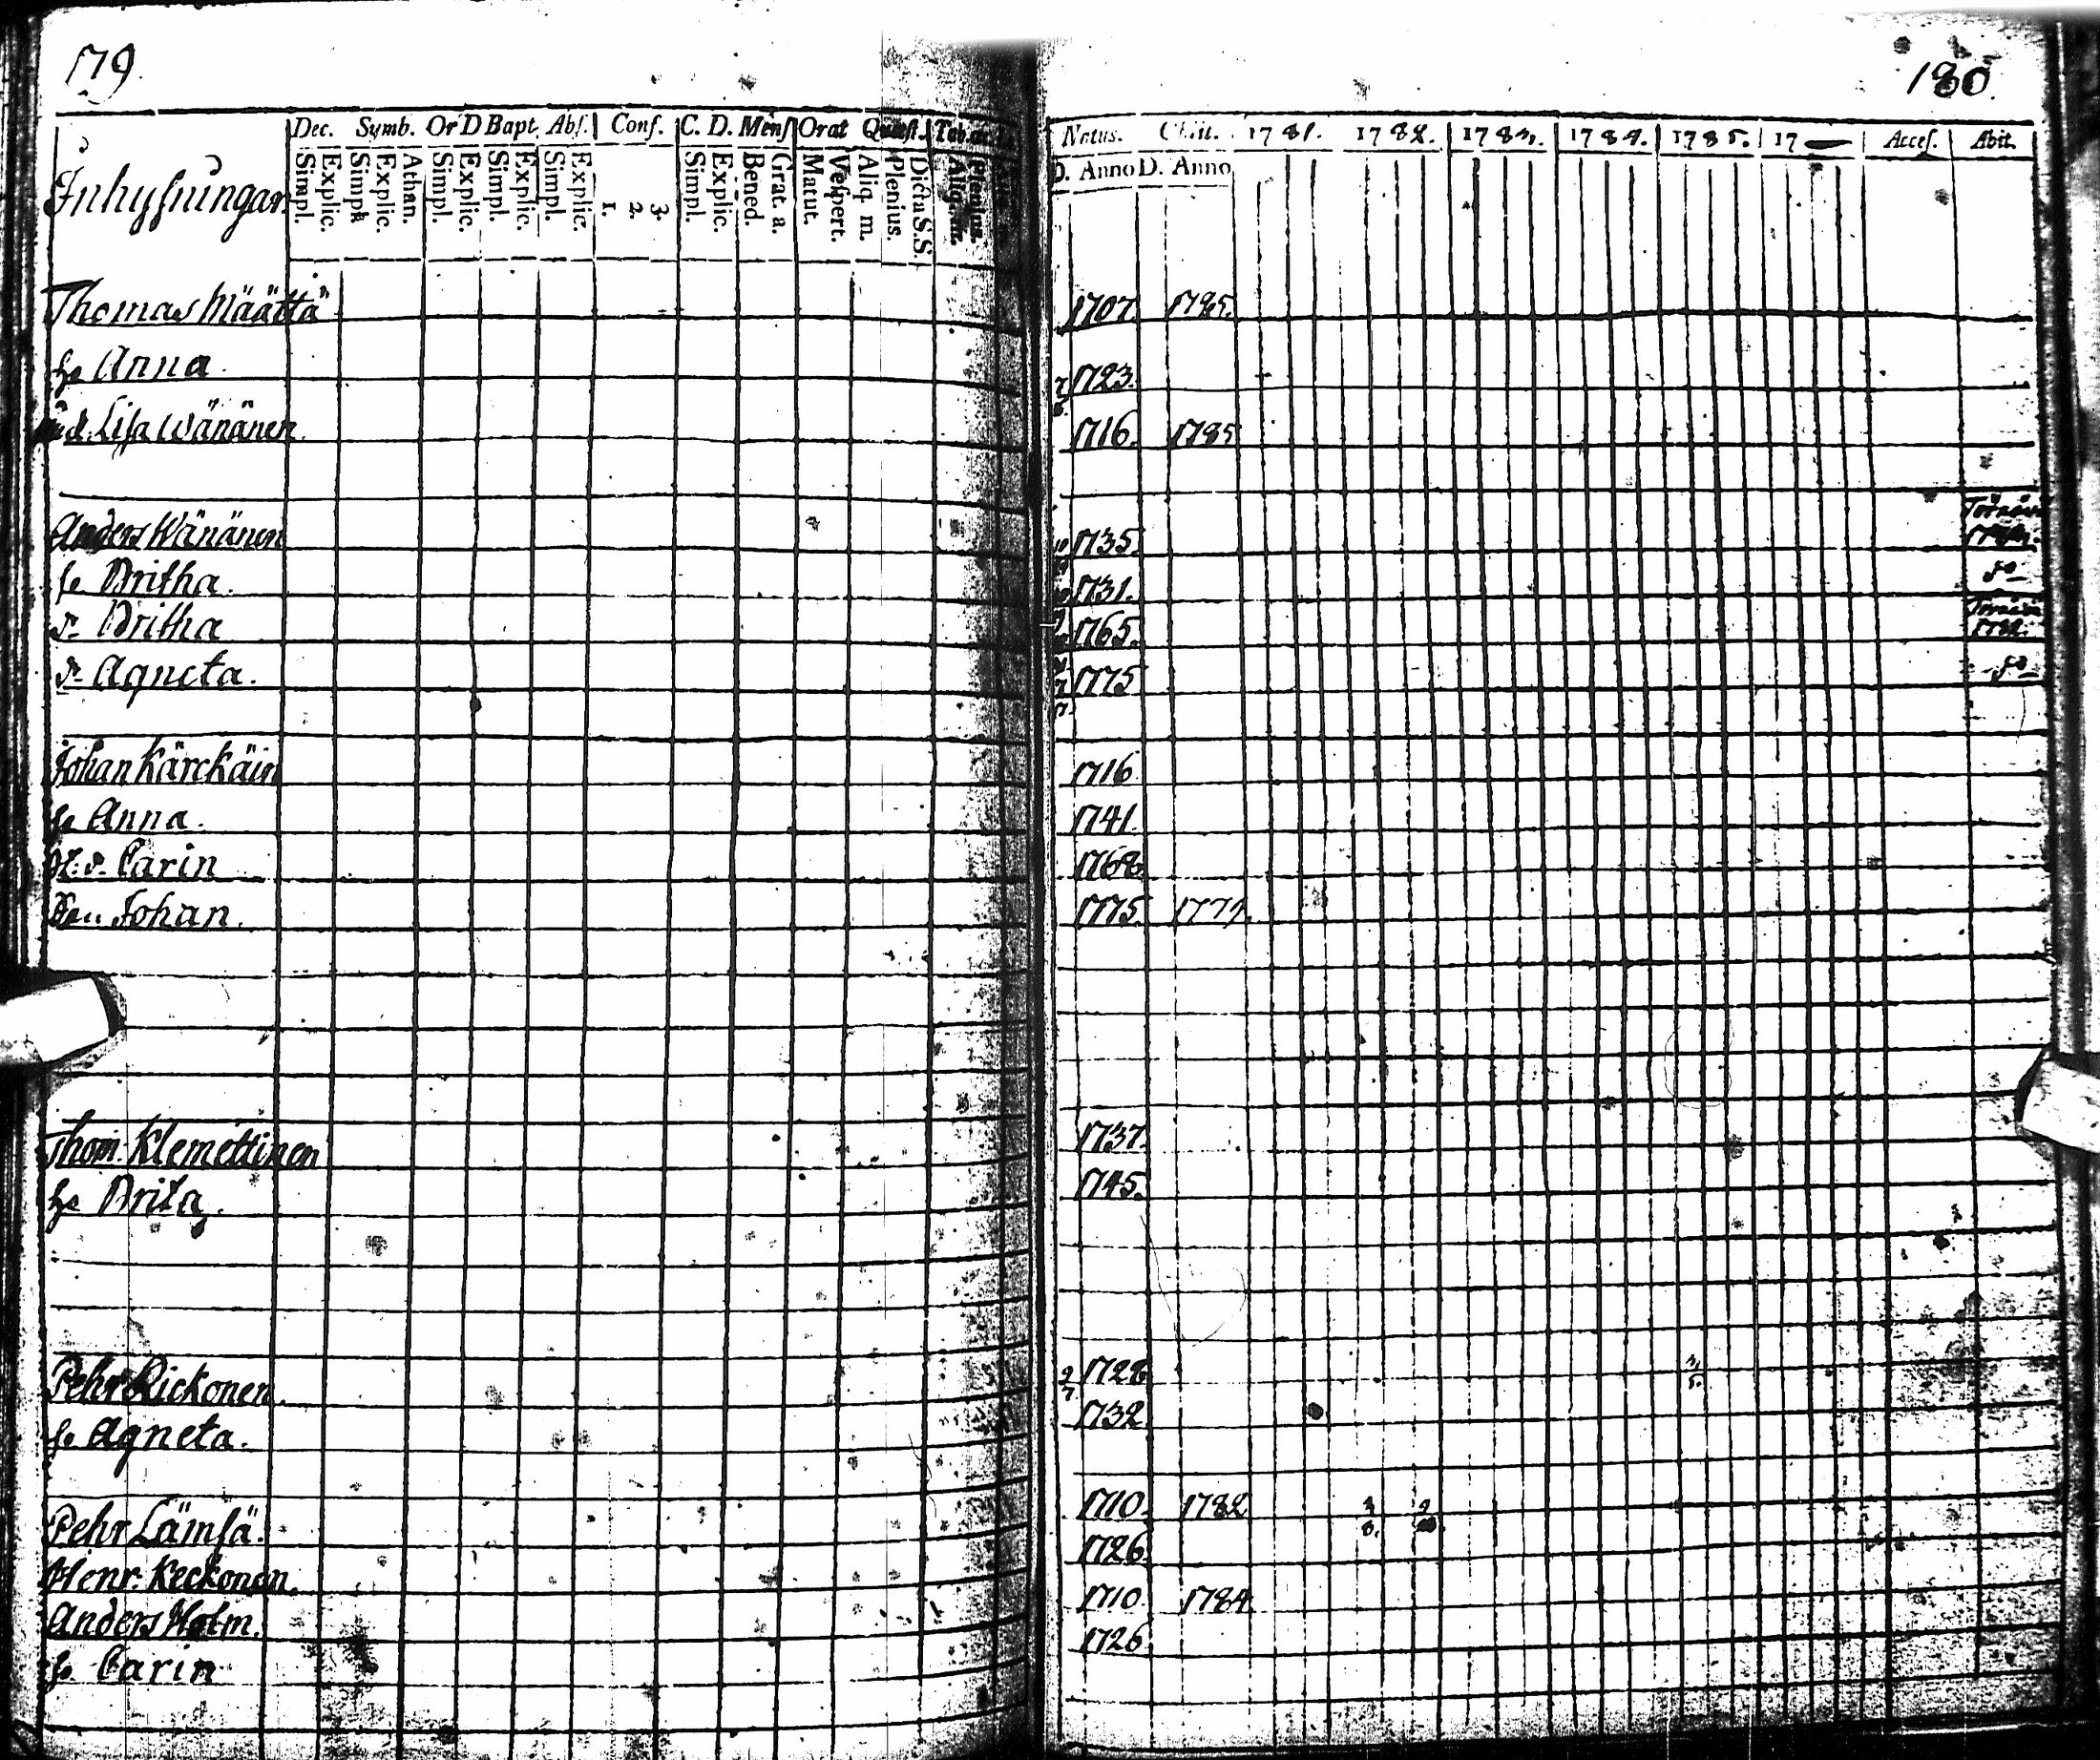 179.
180.
Dec. Symb. Or D Bapt. Abs. Conf. C. D. Mens Orat Quæst. Tab.
Natus. Obiit. 1781. 1782. 1783. 1784. 1785. 17— Acces. Abit.
Inhysningar.
Simpl. Explic. Simpl. Explic. Athan. Simpl. Explic. Simpl. Explic. Simpl. Explic. 1. 2. 3. Simpl. Explic. Bened. Grat. a. Matut. Vespert. Aliq. m. Plenius. Dicta S.S. Aliq. m. Plenius.
D. Anno D. Anno
Thomas Määttä 1707. 1785.
h. Anna. 1723.
Lisa Wänänen 1716. 1785
Anders Wänänen 1735.
h. Britha. 1731. do
d. Britha 1765. 1782.
d. Agneta. 1775 do
Johan Kärckäin 1716
h. Anna. 1741.
d. Carin 1768.
Johan. 1775. 1777.
Thom. Klemettinen 1737.
h. Brita. 1745.
Pehr Rickonen. 9/7 1728
h. Agneta. 1732
Pehr Lämsä. 1710. 1782
Henr. Keckonen. 1726.
Anders Holm. 1710 1784.
h. Carin 1726.